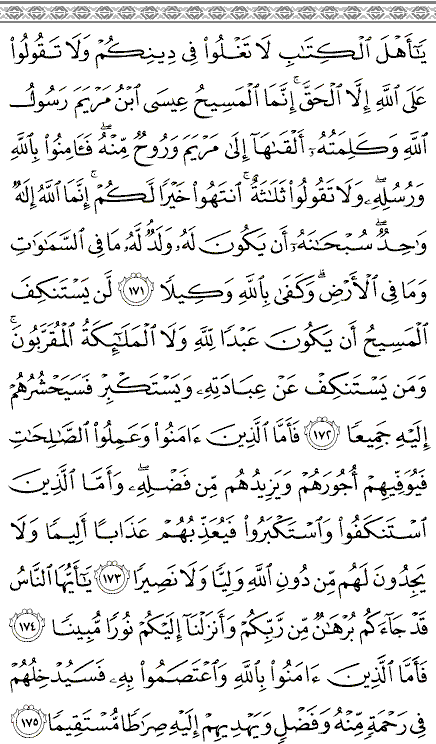 يَٰٓأَهۡلَ ٱلۡكِتَٰبِ لَا تَغۡلُواْ فِي دِينِكُمۡ وَلَا تَقُولُواْ
عَلَى ٱللَّهِ إِلَّا ٱلۡحَقَّۚ إِنَّمَا ٱلۡمَسِيحُ عِيسَى ٱبۡنُ مَرۡيَمَ رَسُولُ
ٱللَّهِ وَكَلِمَتُهُۥٓ أَلۡقَىٰهَآ إِلَىٰ مَرۡيَمَ وَرُوحٞ مِّنۡهُۖ فَـَٔامِنُواْ بِٱللَّهِ
وَرُسُلِهِۦۖ وَلَا تَقُولُواْ ثَلَٰثَةٌۚ ٱنتَهُواْ خَيۡرٗا لَّكُمۡۚ إِنَّمَا ٱللَّهُ إِلَٰهٞ
وَٰحِدٞۖ سُبۡحَٰنَهُۥٓ أَن يَكُونَ لَهُۥ وَلَدٞۘ لَّهُۥ مَا فِي ٱلسَّمَٰوَٰتِ
وَمَا فِي ٱلۡأَرۡضِۗ وَكَفَىٰ بِٱللَّهِ وَكِيلٗا ١٧١ لَّن يَسۡتَنكِفَ
ٱلۡمَسِيحُ أَن يَكُونَ عَبۡدٗا لِّلَّهِ وَلَا ٱلۡمَلَٰٓئِكَةُ ٱلۡمُقَرَّبُونَۚ
وَمَن يَسۡتَنكِفۡ عَنۡ عِبَادَتِهِۦ وَيَسۡتَكۡبِرۡ فَسَيَحۡشُرُهُمۡ
إِلَيۡهِ جَمِيعٗا ١٧٢ فَأَمَّا ٱلَّذِينَ ءَامَنُواْ وَعَمِلُواْ ٱلصَّٰلِحَٰتِ
فَيُوَفِّيهِمۡ أُجُورَهُمۡ وَيَزِيدُهُم مِّن فَضۡلِهِۦۖ وَأَمَّا ٱلَّذِينَ
ٱسۡتَنكَفُواْ وَٱسۡتَكۡبَرُواْ فَيُعَذِّبُهُمۡ عَذَابًا أَلِيمٗا وَلَا
يَجِدُونَ لَهُم مِّن دُونِ ٱللَّهِ وَلِيّٗا وَلَا نَصِيرٗا ١٧٣ يَٰٓأَيُّهَا ٱلنَّاسُ
قَدۡ جَآءَكُم بُرۡهَٰنٞ مِّن رَّبِّكُمۡ وَأَنزَلۡنَآ إِلَيۡكُمۡ نُورٗا مُّبِينٗا ١٧٤
فَأَمَّا ٱلَّذِينَ ءَامَنُواْ بِٱللَّهِ وَٱعۡتَصَمُواْ بِهِۦ فَسَيُدۡخِلُهُمۡ
فِي رَحۡمَةٖ مِّنۡهُ وَفَضۡلٖ وَيَهۡدِيهِمۡ إِلَيۡهِ صِرَٰطٗا مُّسۡتَقِيمٗا ١٧٥